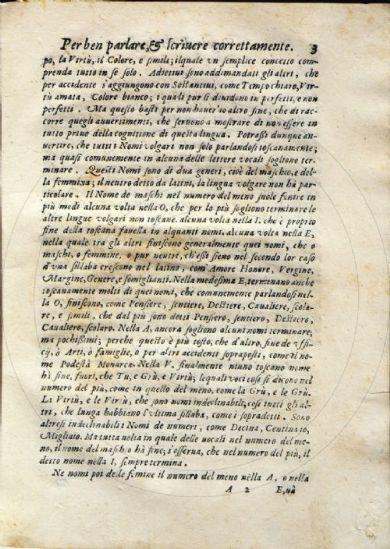 Per ben parlare, & scriuere correttamente. 3
po, la Virtù, il Colore, e simili; il quale vn semplice concetto com
prende tutto in se solo. Adiettiui sono addimandati gli altri, che
per accidente s'aggiungono con Sostantiui, come Tempo chiaro, Vir
tù amata, Colore bianco; i quali pur si diuidono in perfetti, e non
perfetti. Ma questo basti per non hauer' io altro fine, che di rac
corre quegli auuertimenti, che seruono a mostrare di non essere in
tutto priuo della cognitione di questa lingua. Potrassi dunque au-
uertire, che tutti i Nomi volgari non solo parlandosi toscanamente;
ma quasi comunemente in alcuna delle lettere vocali sogliono ter
minare. Questi Nomi sono di due generi, cioè del maschio, e del-
la femmina; il neutro detto da latini, la lingua volgare non hà par
ticolare. Il Nome de maschi nel numero del meno suole finire in
più modi alcuna volta nella O, che per lo più sogliono terminare le
altre lingue volgari non toscane. alcuna volta nella I. che è proprio
fine della toscana fauella in alquanti nomi. alcuna volta nella E,
nella quale tra gli altri finiscono generalmente quei nomi, che o
maschi, o femmine, o pur neutri, ch'essi sieno nel secondo lor caso
d'vna sillaba crescono nel latino, com Amore Honore, Vergine,
Margine, Genere, e simiglianti. Nella medesima E, terminano anche
toscanamente molti di quei nomi, che comunemente parlando nel-
la O, finiscono, come Pensiere, sentiere, Destiere, Caualiere, scole-
re, e simili, che dal più sono detti Pensiero, sentiero, Destiero,
Caualiero, scolaro. Nella A, ancora sogliono alcuni nomi terminare,
ma pochissimi; perche questo è più tosto, che d'altro, fine de vffi-
cij, ò Arti, ò famiglie, o per altri accidenti sopraposti, come il no
me Podestà Monarca. Nella V. finalmente niuno toscano nome
hà fine, fuori, che Tu, e Grù, e Virtù; le quali voci così si dicono nel
numero del più, come in quello del meno, come la Grù, e le Grù.
La Virtù, e le Virtù, che sono nomi indeclinabili, così tutti gli al-
tri, che lunga hebbiano l'vltima sillaba, come i sopradetti. Sono
altresì indeclinabili i Nomi de numeri, come Decina, Centinaio,
Migliaio. Ma tutta volta in quale delle uocali nel numero del me-
no, il nome del maschio hà fine; s'osserua, che nel numero del più, il
detto nome nella I, sempre termina.
Ne nomi poi delle femine il numero del meno nella A, o nella
A 2 E, uà